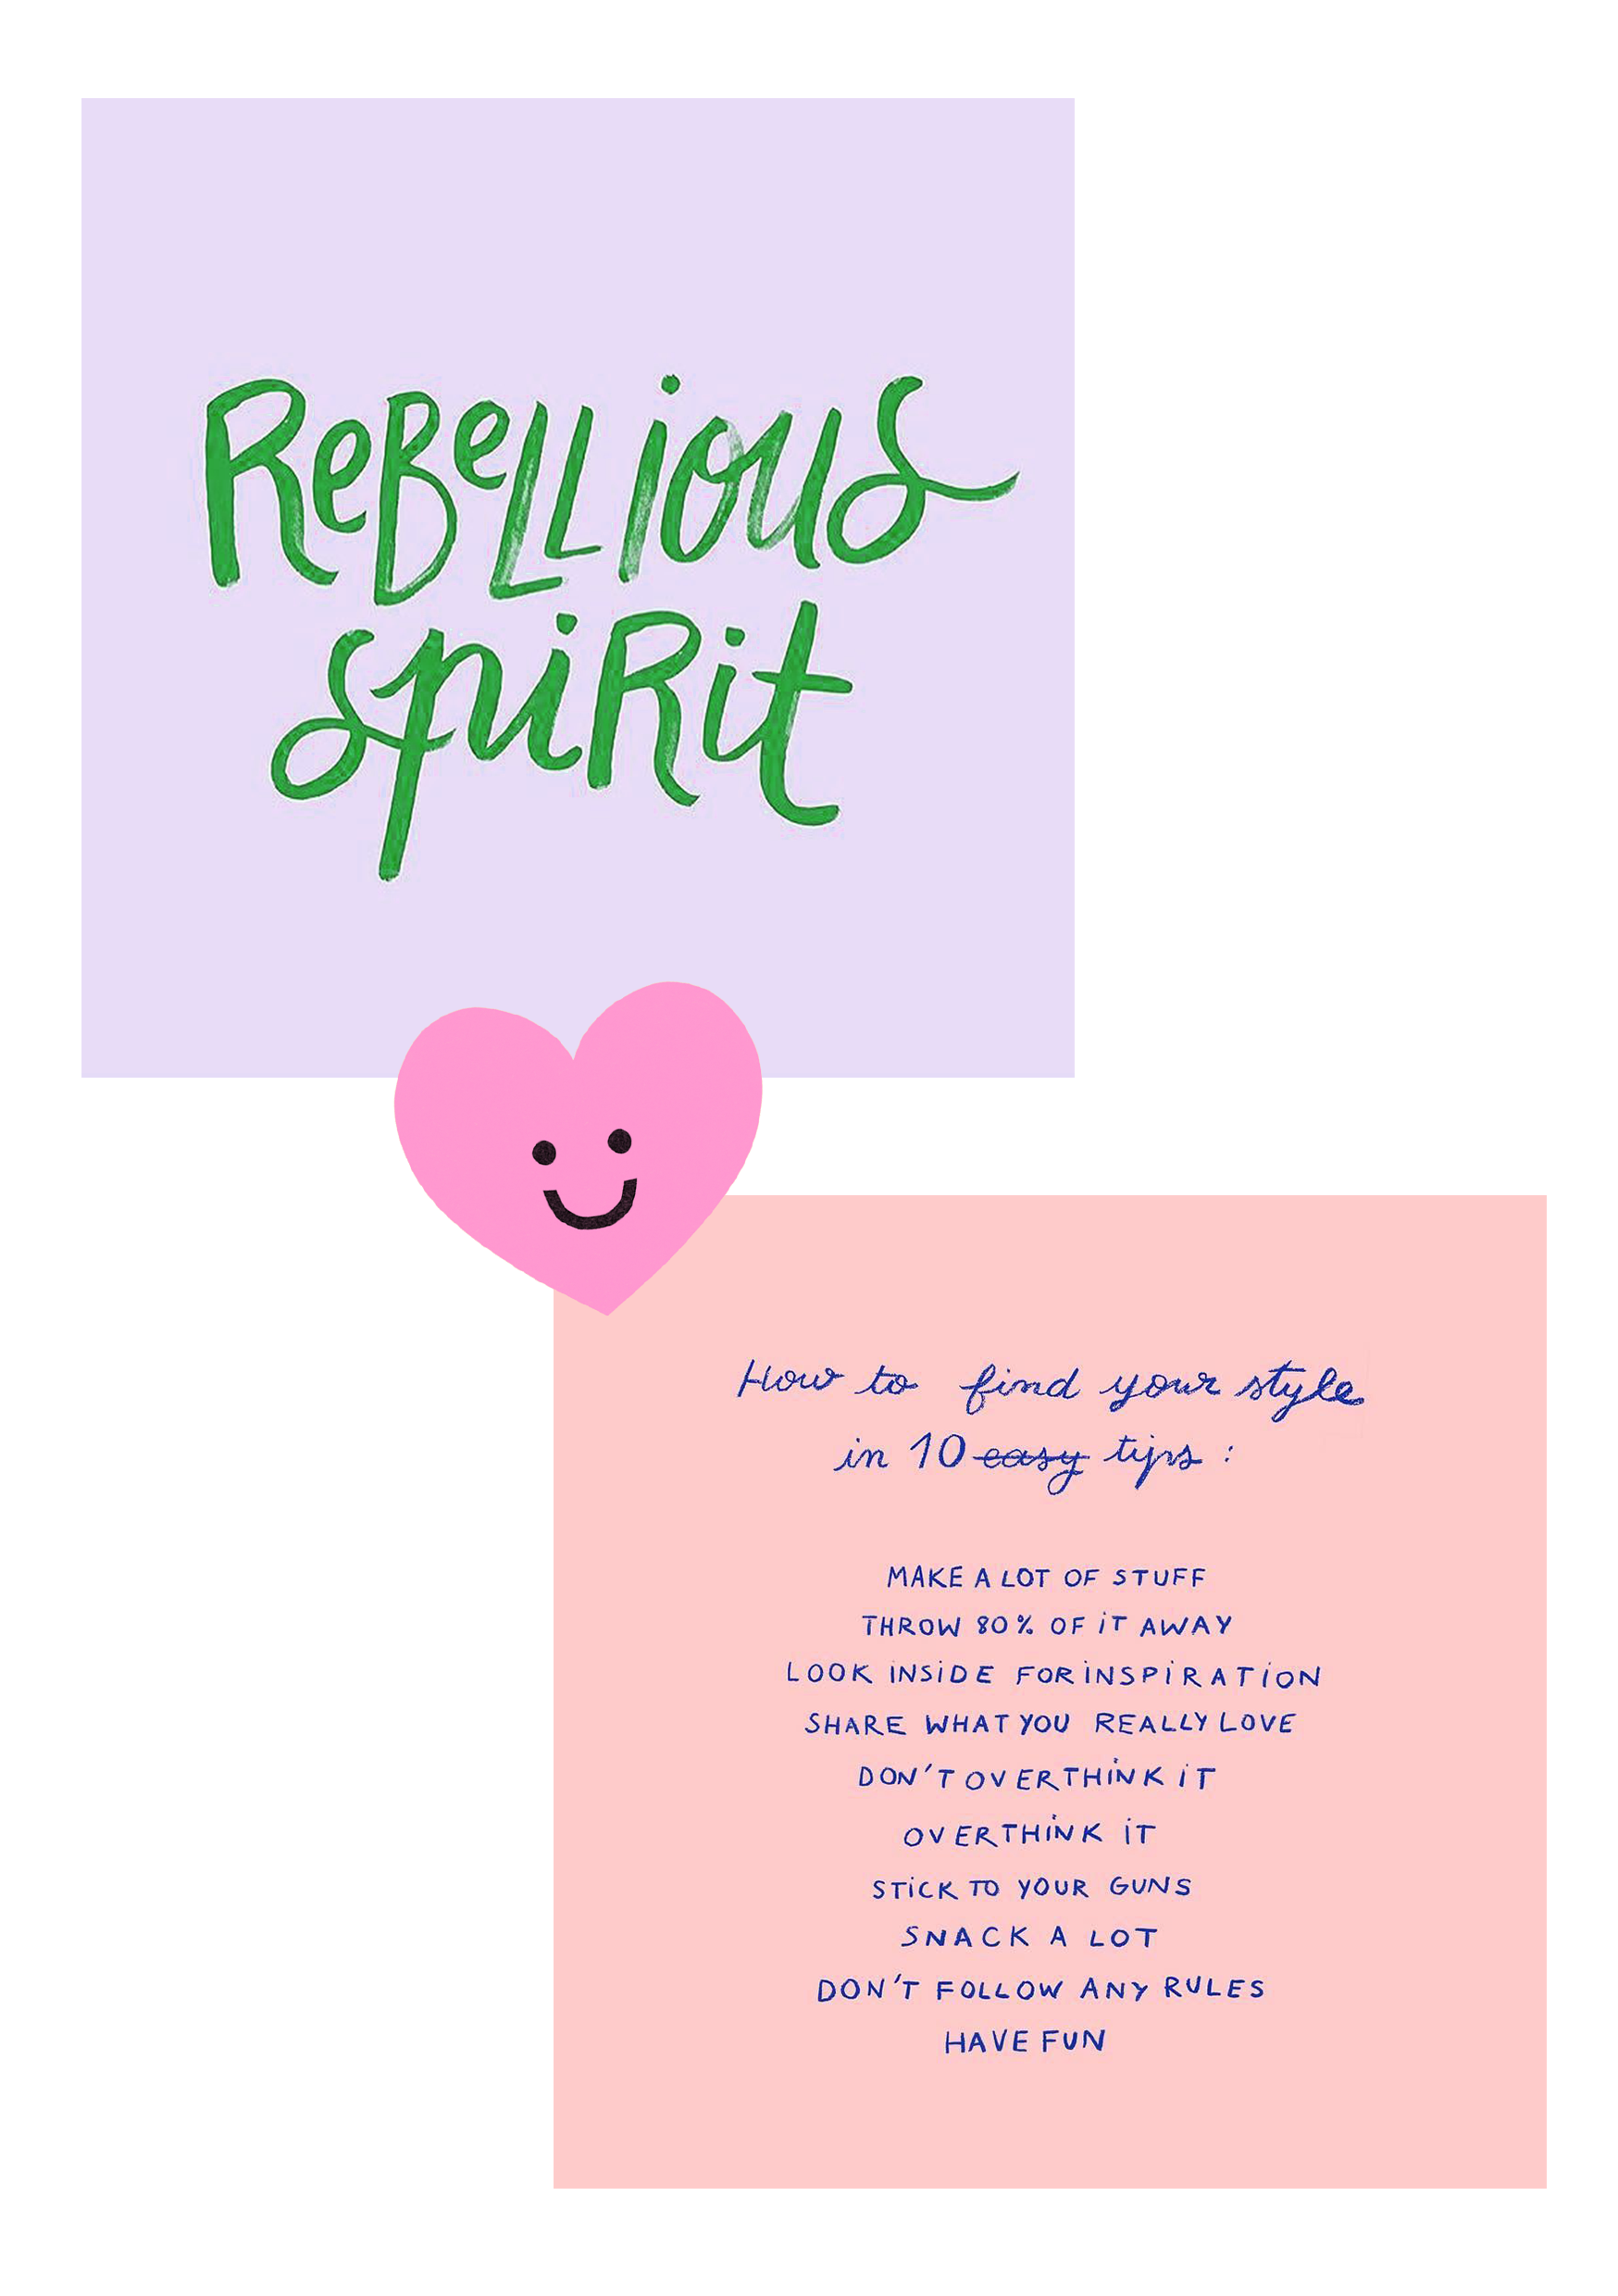 ReBeLLious
spiRit
How to find your style
in 10 easy tips :
MAKE A LOT OF STUFF
THROW 80% OF iT AWAY
LOOK iNSiDE FOR iNSPiRATiON
SHARE WHAT YOU REALLY LOVE
DON'T OVERTHiNK iT
OVERTHiNK iT
STiCK TO YOUR GUNS
SNACK A LOT
DON'T FOLLOW ANY RULES
HAVE FUN